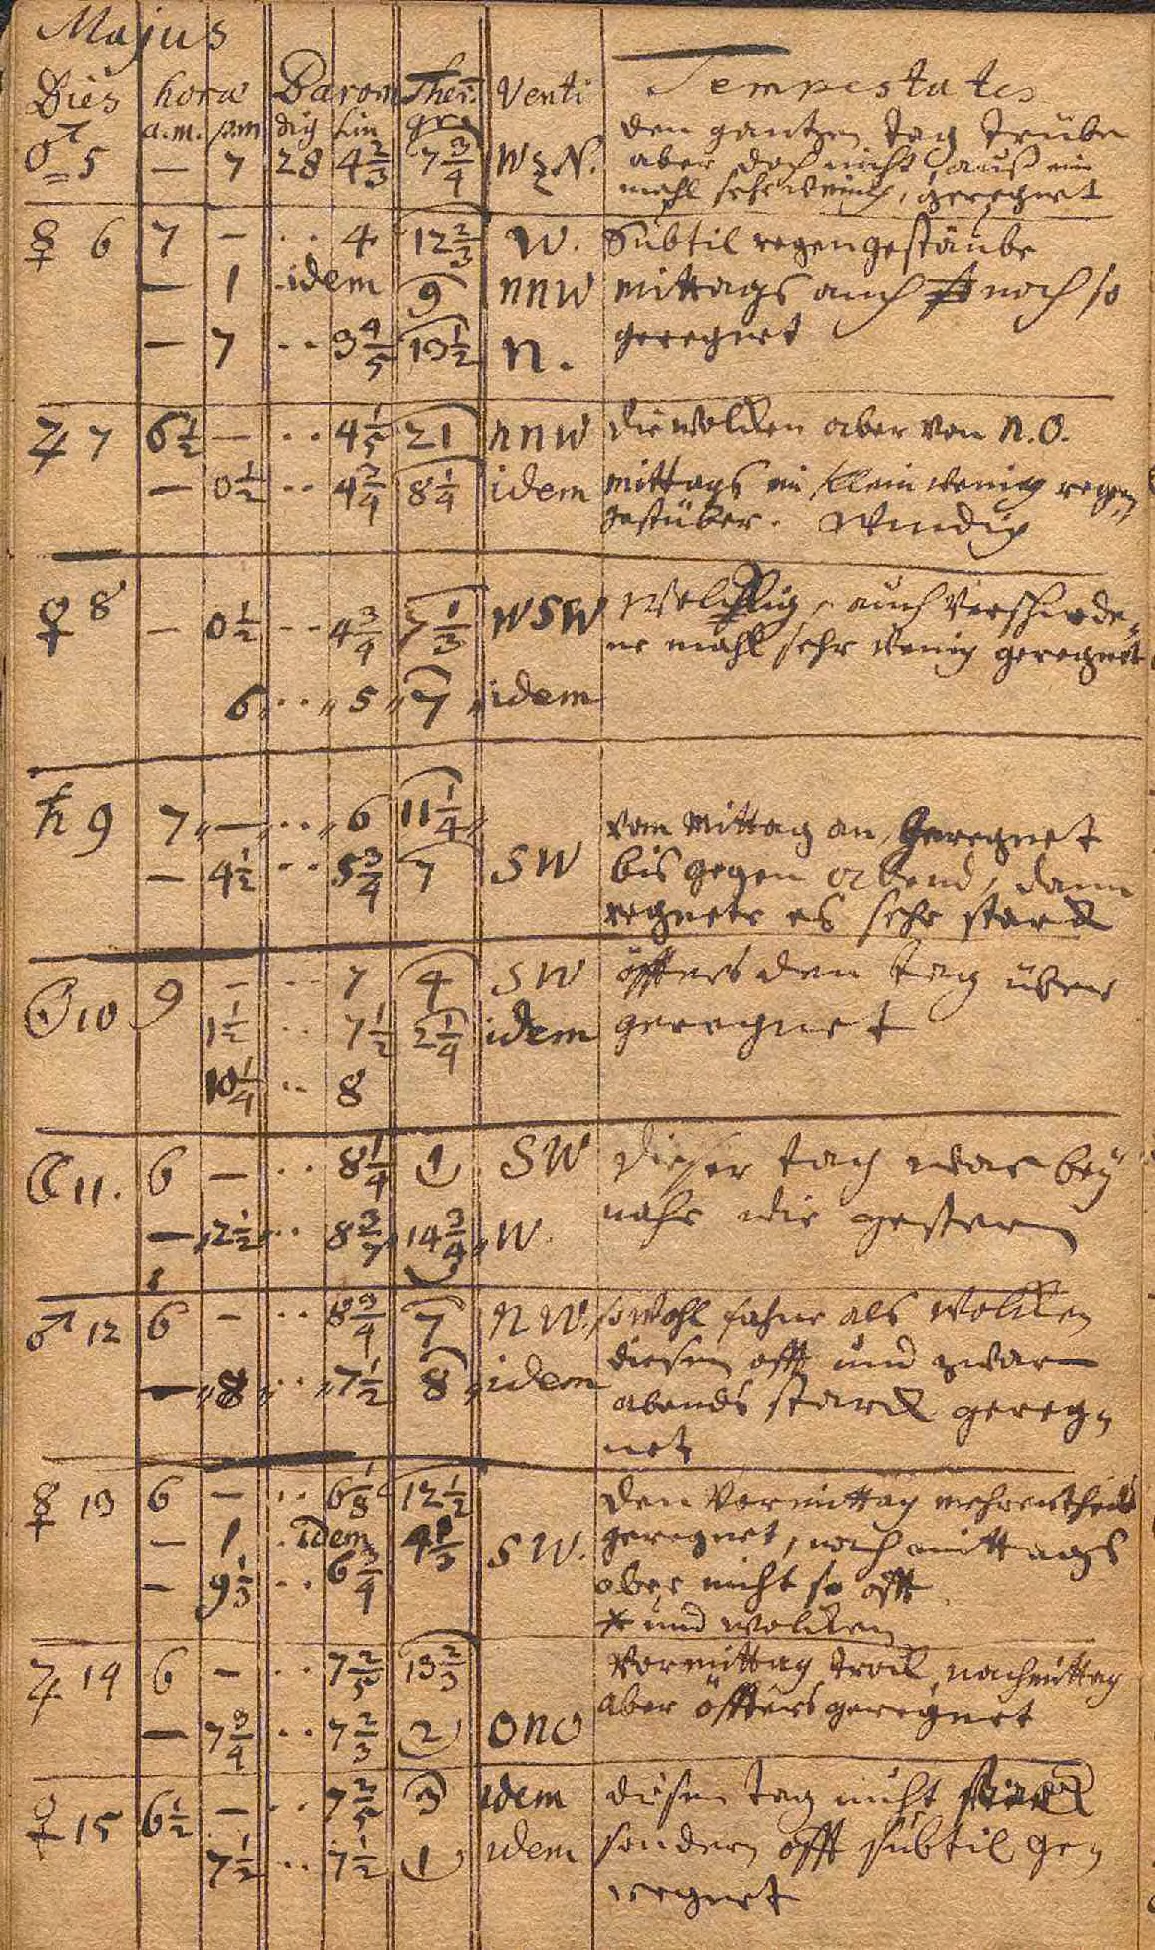 Majus
Dies hora Barom Ther. Venti Tempestates
a.m. p.m dig lin gr. den gantzen tag trübe
♂ 5 — 7 28 4 2/3 7 3/4 W N. aber doch nicht, auß ein
mahl sehr wenig, geregnet
☿ 6 7 — .. 4 12 2/3 W. Subtil regengestäube
— 1 idem 9 nnW mittags auch noch so
— 7 .. 3 4/5 13 1/2 n. geregnet
♃ 7 6 1/2 — .. 4 1/5 21 nnW die wolcken aber von n.O.
— 0 1/2 .. 4 2/4 8 1/4 idem mittags ein klein wenig regen
gestüber. Windig
♀ 8 — 0 1/2 .. 4 3/4 7 1/3 WSW Wolckig, auch verschiede„
ne mahl sehr wenig geregnet
6 „ .. „ 5 „ 7 „ idem
♄ 9 7 „ — „ .. „ 6 11 1/4 „ vom Mittag an, Geregnet
— 4 1/2 .. 5 3/4 7 SW bis gegen abend, dann
regnete es sehr starck
☉ 10 9 — .. 7 4 SW öffters den tag über
1 1/2 .. 7 1/2 2 1/4 idem geregnet
10 1/4 .. 8
☾ 11. 6 — .. 8 1/4 1 SW Dieser tach war bey
— 2 1/2 .. 8 3/7 14 3/4 „ W. nahe wie gestern
♂ 12 6 — .. 8 3/4 7 NW. sowohl fahne als wolcken
— „ 8 „ .. „ 7 1/2 8 „ idem diesen offt und zwar
abends starck gereg„
net
☿ 13 6 — .. 6 1/8 12 1/2 den Vormittag mehrentheils
— 1 . idem 4 1/3 SW. geregnet, nachmittags
— 9 1/3 .. 6 3/4 aber nicht so offt
* und wolcken
♃ 14 6 — .. 7 2/5 13 2/3 Vormittag trock, nachmittag
— 7 3/4 .. 7 2/3 2 ONO aber öffters geregnet
♀ 15 6 1/2 — .. 7 2/5 3 idem diesen tag nicht starck
7 1/2 .. 7 1/2 1 idem sondern offt subtil ge„
regnet